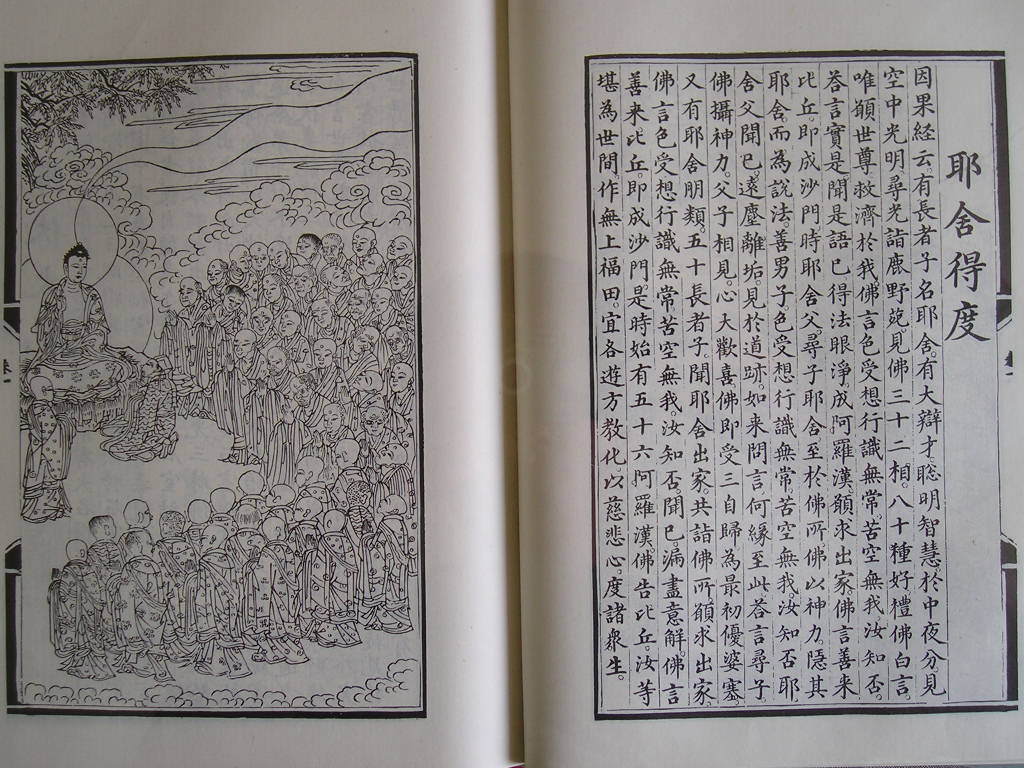 耶舍得度
因果經云。有長者子名耶舍。有大辯才聰明智慧於中夜分見
空中光明。尋光詣鹿野苑。見佛三十二相。八十種好禮佛白言。
唯願世尊救濟於我。佛言色受想行識無常苦空無我汝知否。
答言實是。聞是語已得法眼淨。成阿羅漢願求出家。佛言善來
比丘。即成沙門時耶舍父。尋子耶舍至於佛所佛以神力。隱其
耶舍而為說法。善男子色受想行識無常苦空無我。汝知否耶
舍父聞已。遠塵離垢。見於道跡。如來問言。何緣至此答言尋子
佛攝神力。父子相見。心大歡喜。佛即受三自歸為最初優婆塞。
又有耶舍朋類。五十長者子聞耶舍出家。共詣佛所願求出家。
佛言色受想行識無常苦空無我。汝知否聞已漏盡意解。佛言
善来比丘。即成沙門。是時始有五十六阿羅漢。佛告比丘。汝等
堪為世間。作無上福田。宜各遊方教化。以慈悲心。度諸眾生。
卷一